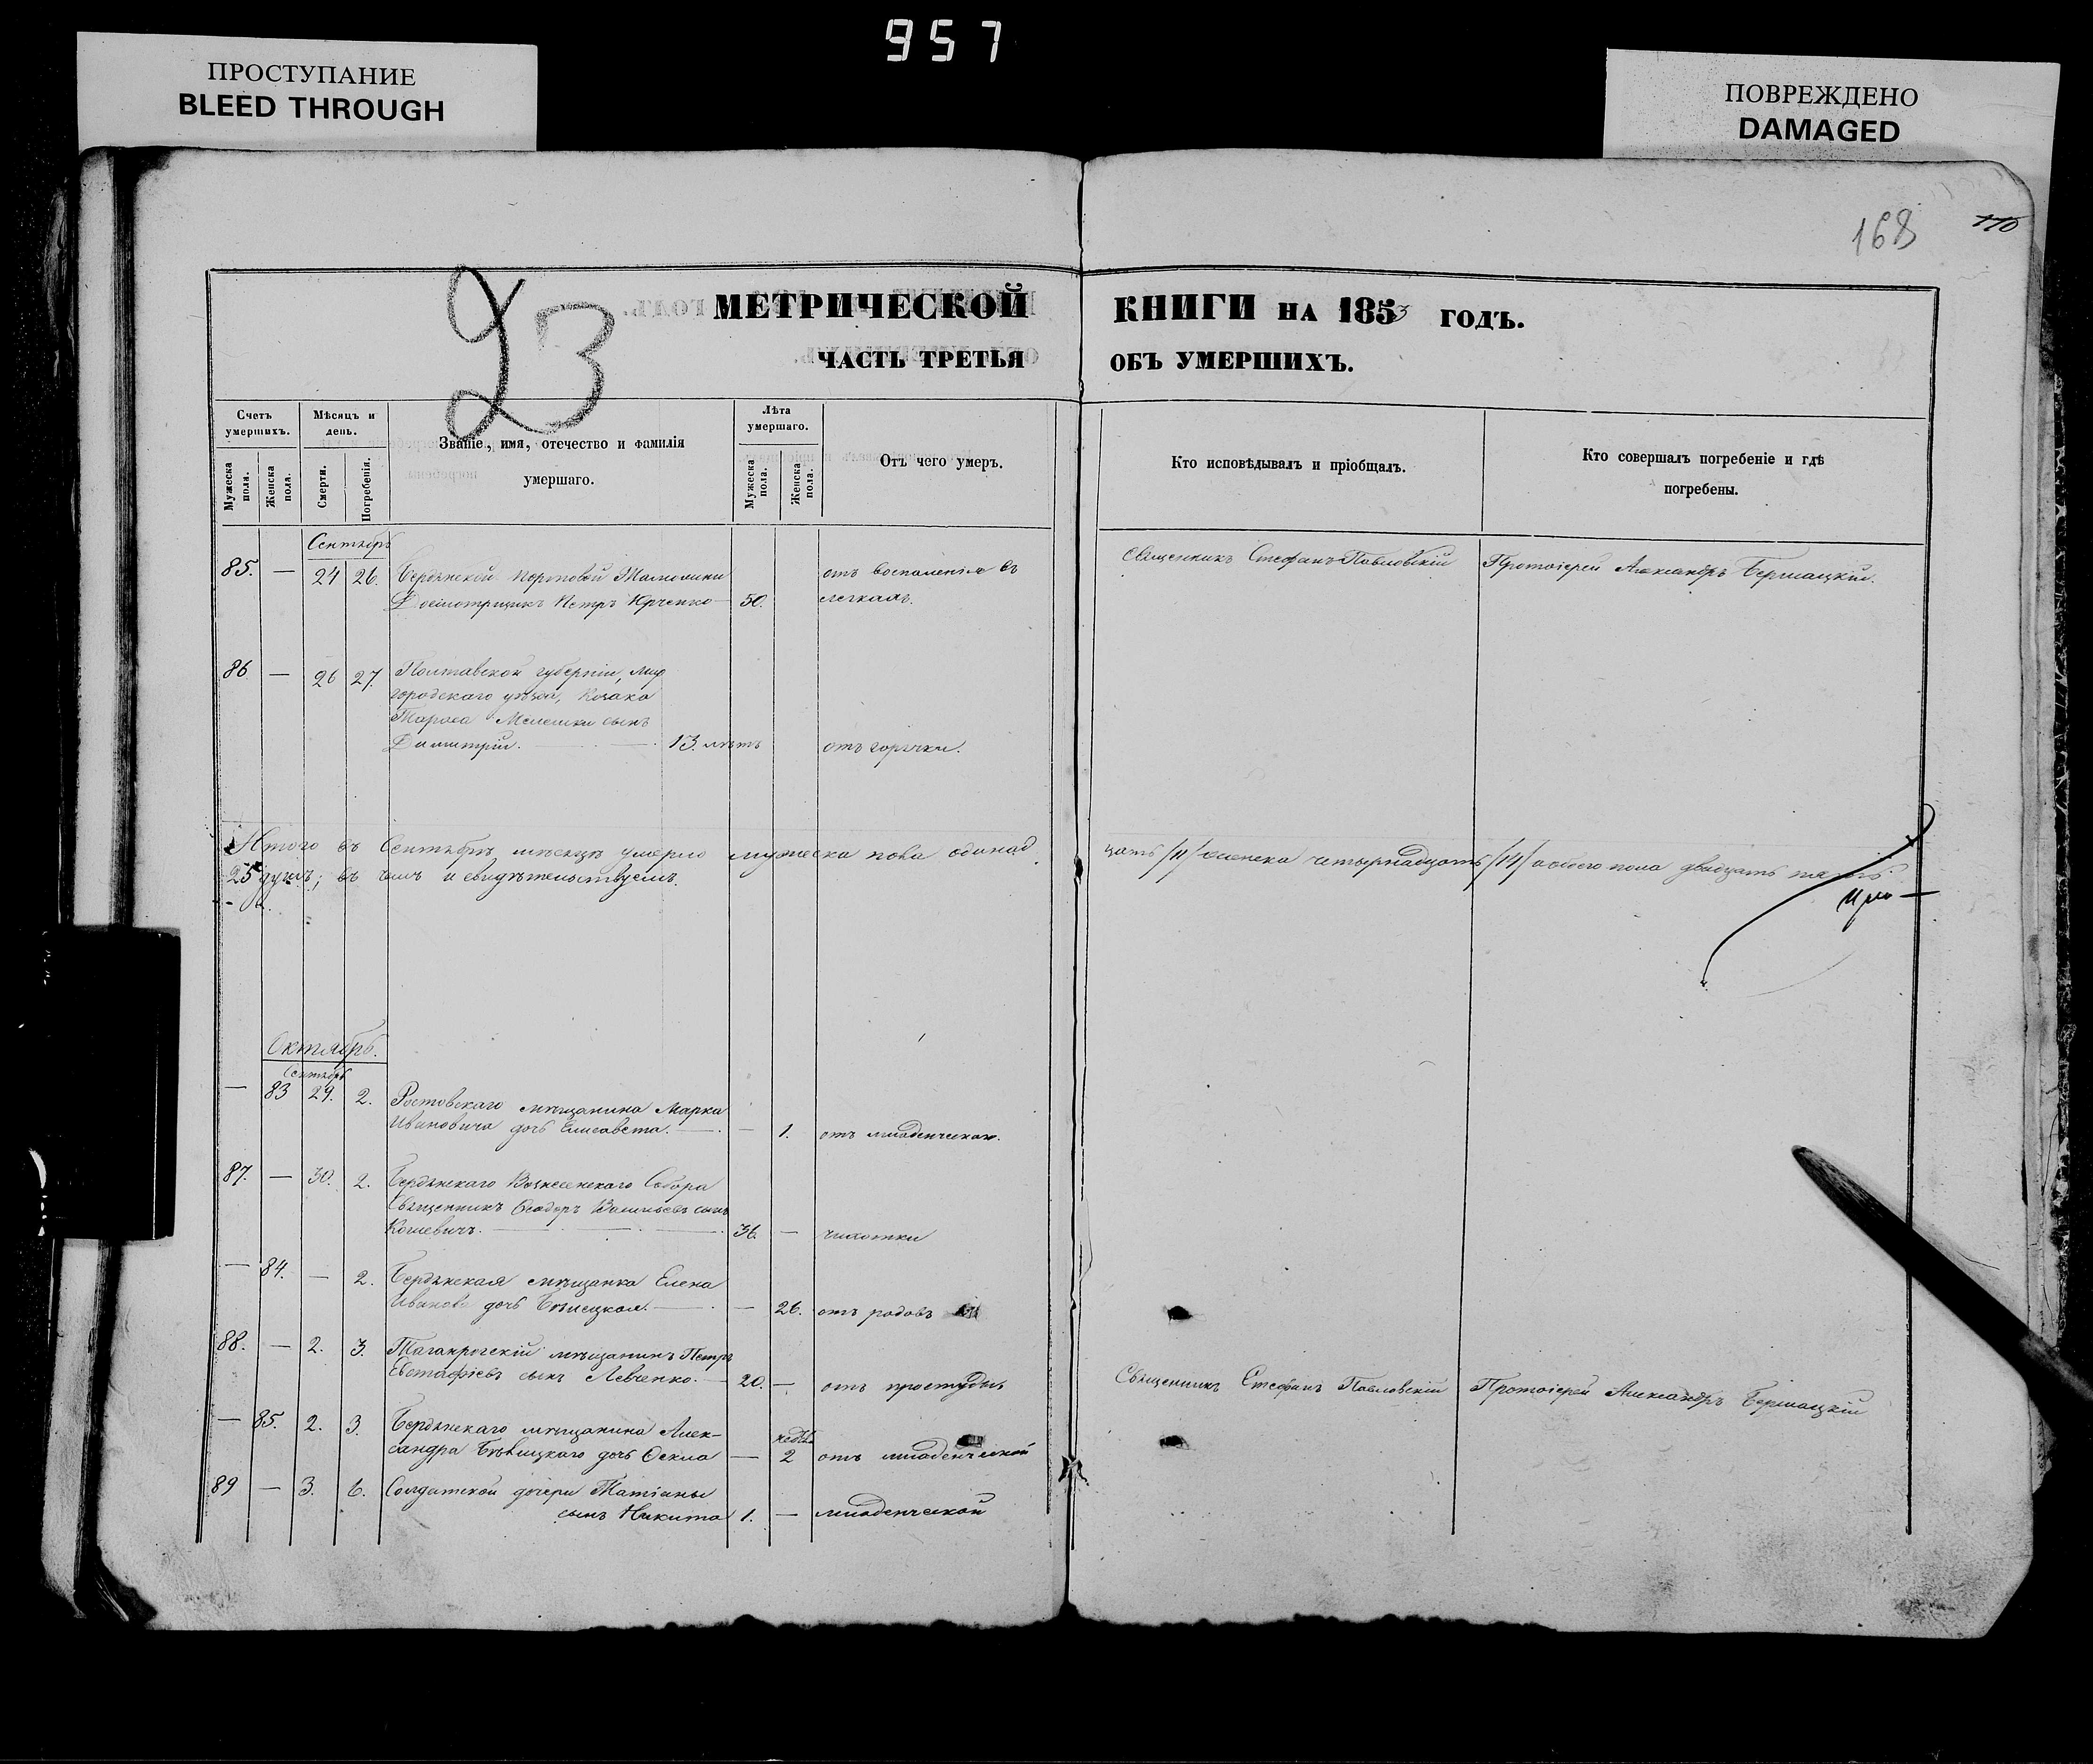 957
ПРОСТУПАНИЕ
BLEED THROUGH
ПОВРЕЖДЕНО
DAMAGED
168
110
23
МЕТРИЧЕСКОЙ КНИГИ НА 1853 ГОДЪ.
ЧАСТЬ ТРЕТЬЯ ОБЪ УМЕРШИХЪ.
Счетъ умершихъ.
Мужеска пола.
Женска пола.
Мѣсяцъ и день.
Смерти.
Погребенія.
Званіе, имя, отечество и фамилія
умершаго.
Лѣта умершаго.
Мужеска пола.
Женска пола.
Отъ чего умеръ.
Кто исповѣдывалъ и пріобщалъ.
Кто совершалъ погребеніе и гдѣ
погребены.
Сентябрь
85. — 24 26. Бердянской портовой Таможни отъ воспаленія въ Священникъ Стефанъ Павловскій Протоіерей Александръ
Досмотрщикъ Петръ Юрченко — 50. легкихъ.
86 — 26 27. Полтавской губерніи, мир
городскаго уѣзда, Козака
Тараса сынъ
Димитрій. — 13. лѣтъ отъ горячки.
Итого въ Сентябрѣ мѣсяцѣ умерло мужеска пола одинад
цать /11/ женска четырнадцать /14/ обоего пола двадцать пять
25 душъ; въ чемъ и свидѣтельствуемъ.
Октябрь.
Сентябрь
— 83 29. 2. Ростовскаго мѣщанина Марка
Ивановича дочь Елисавета. — — 1. отъ младенческой.
87. — 30. 2. Бердянскаго Вознесенскаго Собора
Священникъ Ѳеодоръ Васильевъ сынъ
— 36. — чахотки
— 84. — 2. Бердянская мѣщанка Елена
Иванова дочь — — 26. отъ родовъ
88. — 2. 3. Таганрогскій мѣщанинъ Петръ
Евстафіевъ сынъ Левченко. — 20. — отъ простуды Священникъ Стефанъ Павловскій Протоіерей Александръ
— 85. 2. 3. Бердянскаго мѣщанина Алек-
сандра дочь — 2 отъ младенческой
89 — 3. 6. Солдатской дочери Татіаны
сынъ Никита 1. — младенческой